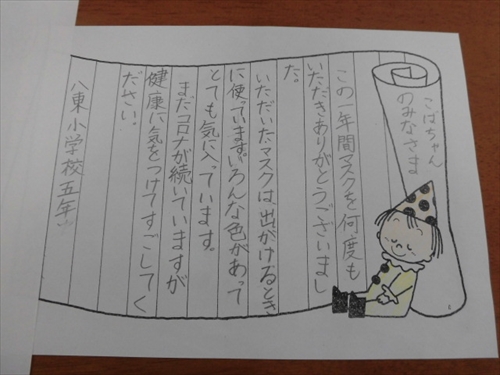 こばちゃん
のみなさま
この一年間マスクを何度も
いただきありがとうございまし
た。
いただいたマスクは出かけるとき
に使っています。いろんな色があって
とても気に入っています。
まだコロナが続いていますが
健康に気をつけてすごしてく
ださい。
八東小学校五年